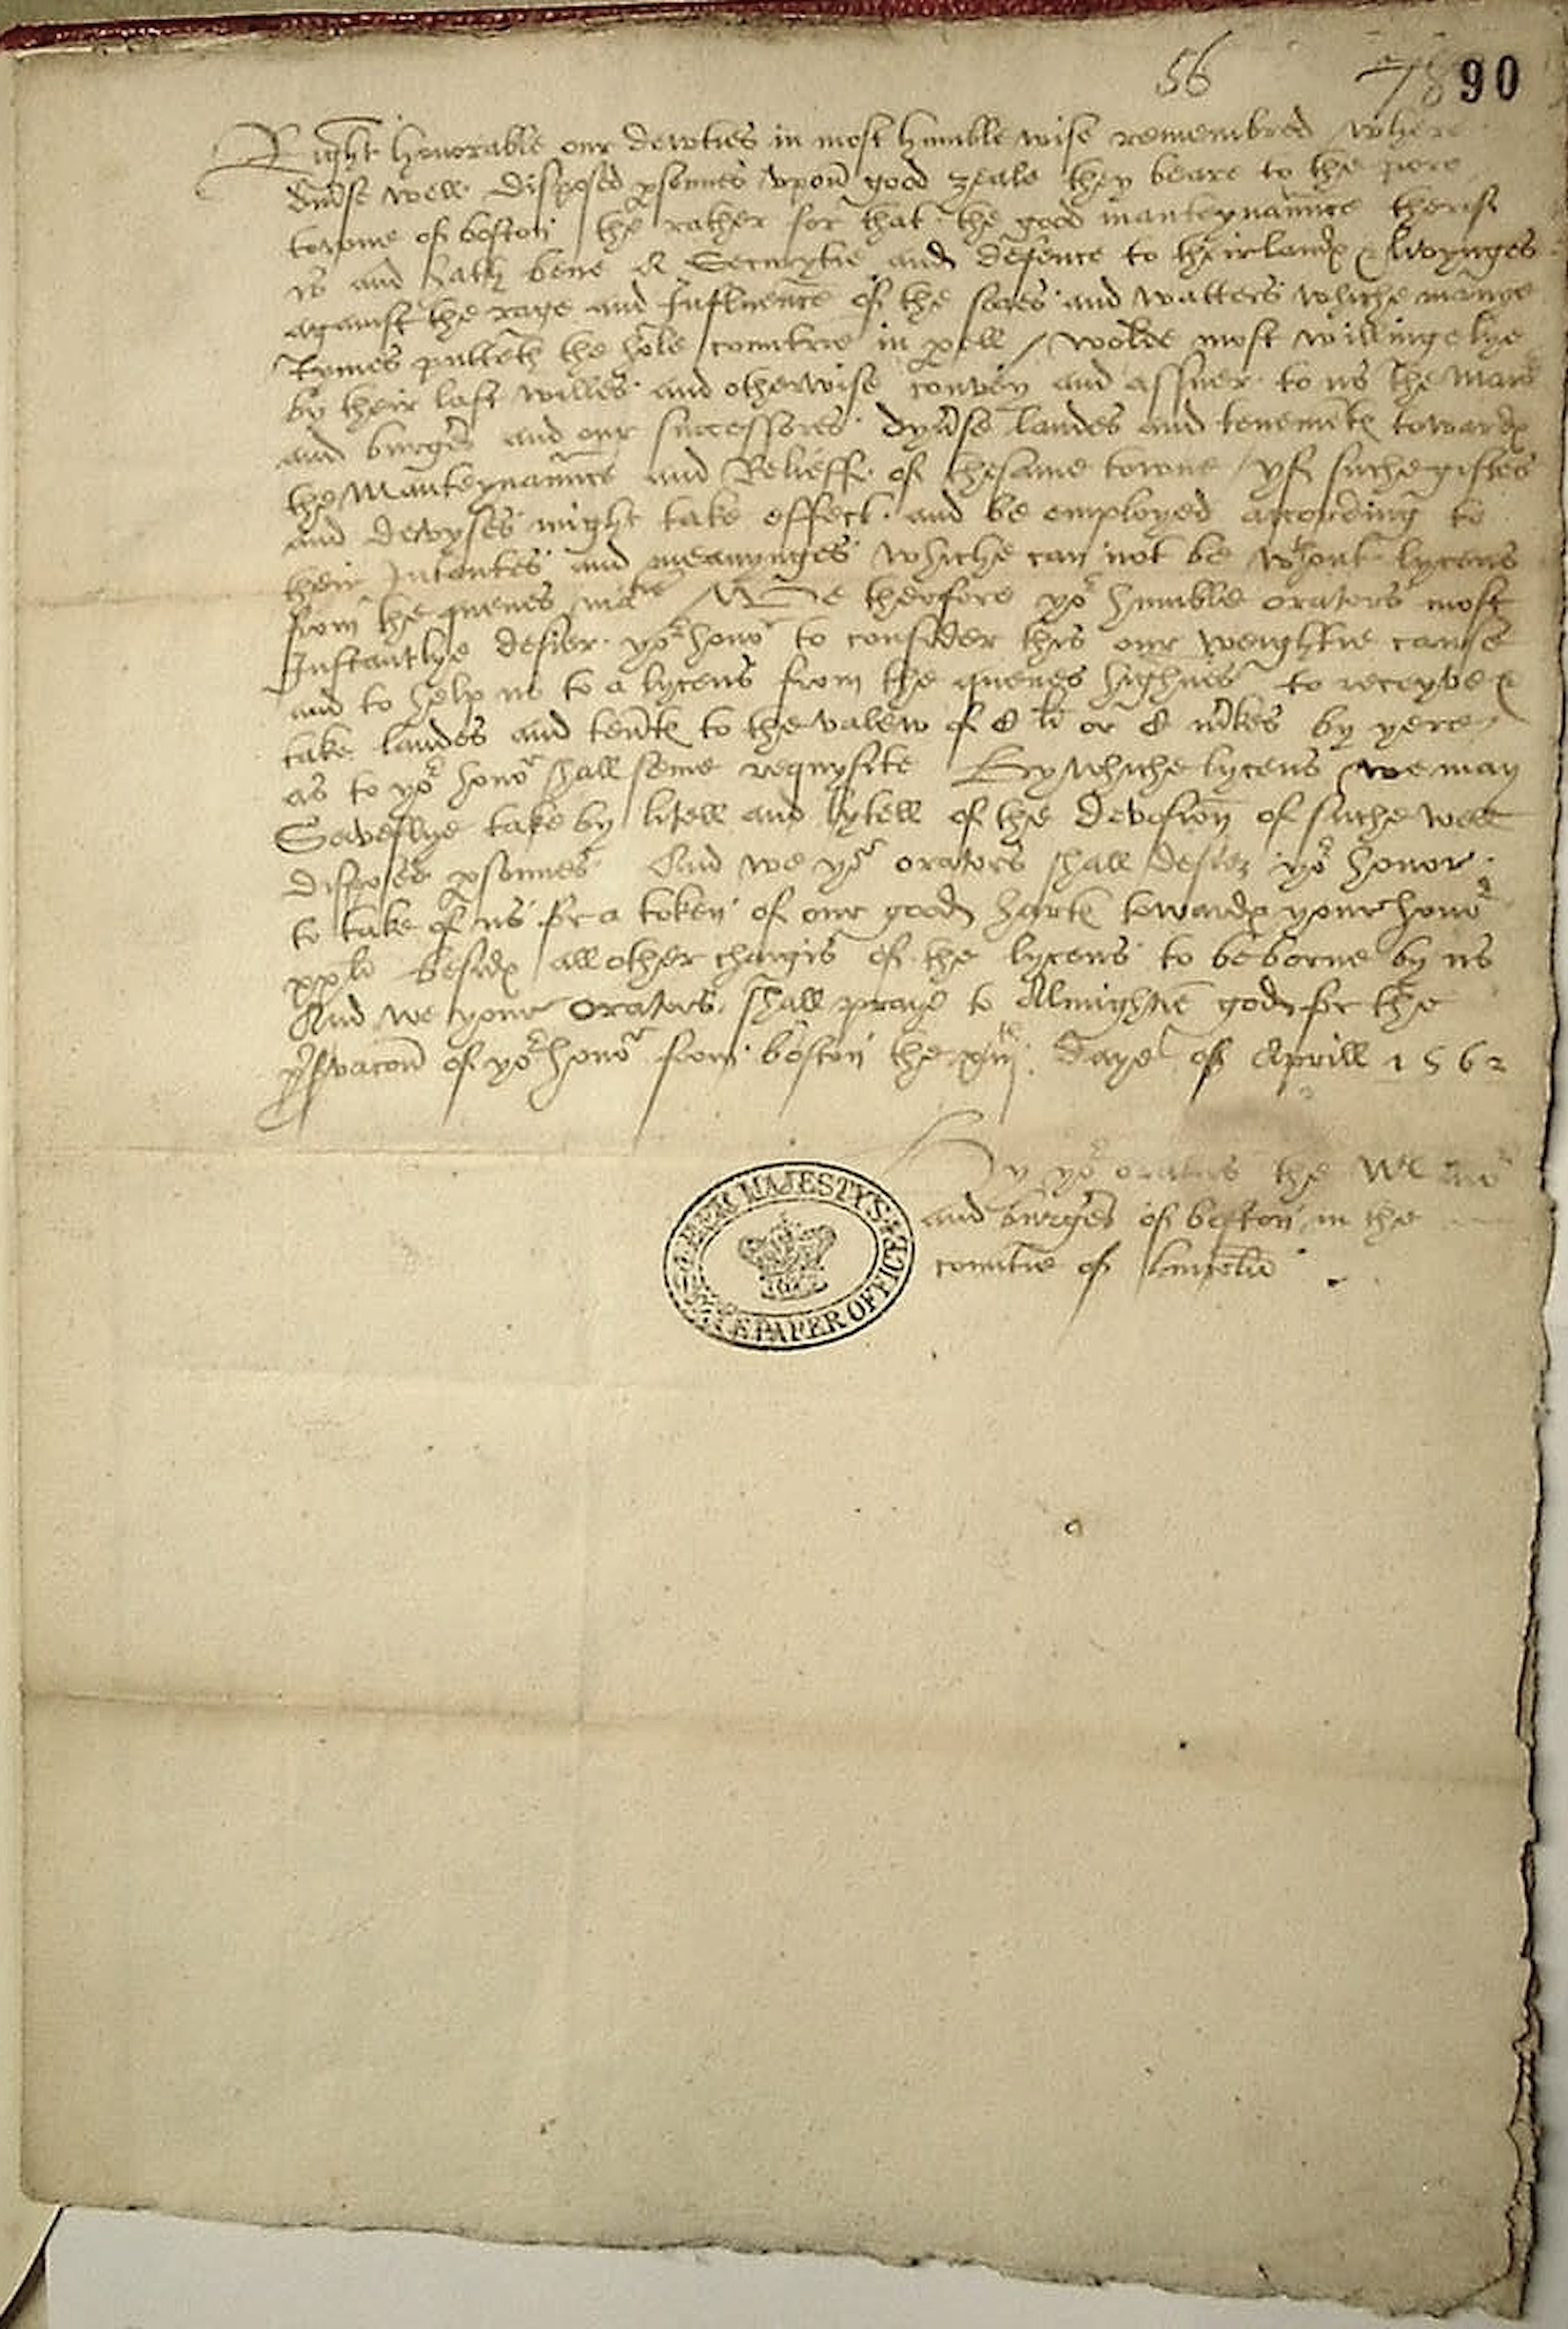 56 78 90
Right honorable our dewties in most humble wise remembred / where
diuerse well disposed psonnes vpon good zeale they beare to the pore
towne of boston / the rather for that the good manteynaunce therof
is and hath bene A Securytie and defence to their landes & lyvynges
against the rage and Influence of the sees and watters whiche manye
tymes putteth the hole countrie in pell / wolde most willingelye
by their last willes and otherwise convey and assuer to us the Maior
and burges and our successores dyuse landes and tenemtes towardes
the Manteynaunce and Relieff of thesame towne / yf suche giftes
and devyses might take effect and be employed according to
their Intentes and meanynges whiche can not be wthout lycens
from the quenes matie We therfore yor humble orators most
Instantlye desier yor honor to consider this our weightie cause
and to help us to a lycens from the quenes highnes to receyve &
take landes and tentes to the valew of C li or C mkes by yere
as to yor honor shall seme requysite By whiche lycens we may
Saveflye take by litell and lytell of the devotion of suche well
disposed psonnes And we yor orators shall desier yor honor
to take of us for a token of our good hartes towardes your honor
xx li besides all other chargis of the lycens to be borne by us
And we your orators shall praye to Almightie god for the
psvacon of yor honor from boston the xiiijth daye of Aprill 1562
By yor orators the Maior
and burges of boston in the
countie of lincoln
HER MAJESTY'S STATE PAPER OFFICE